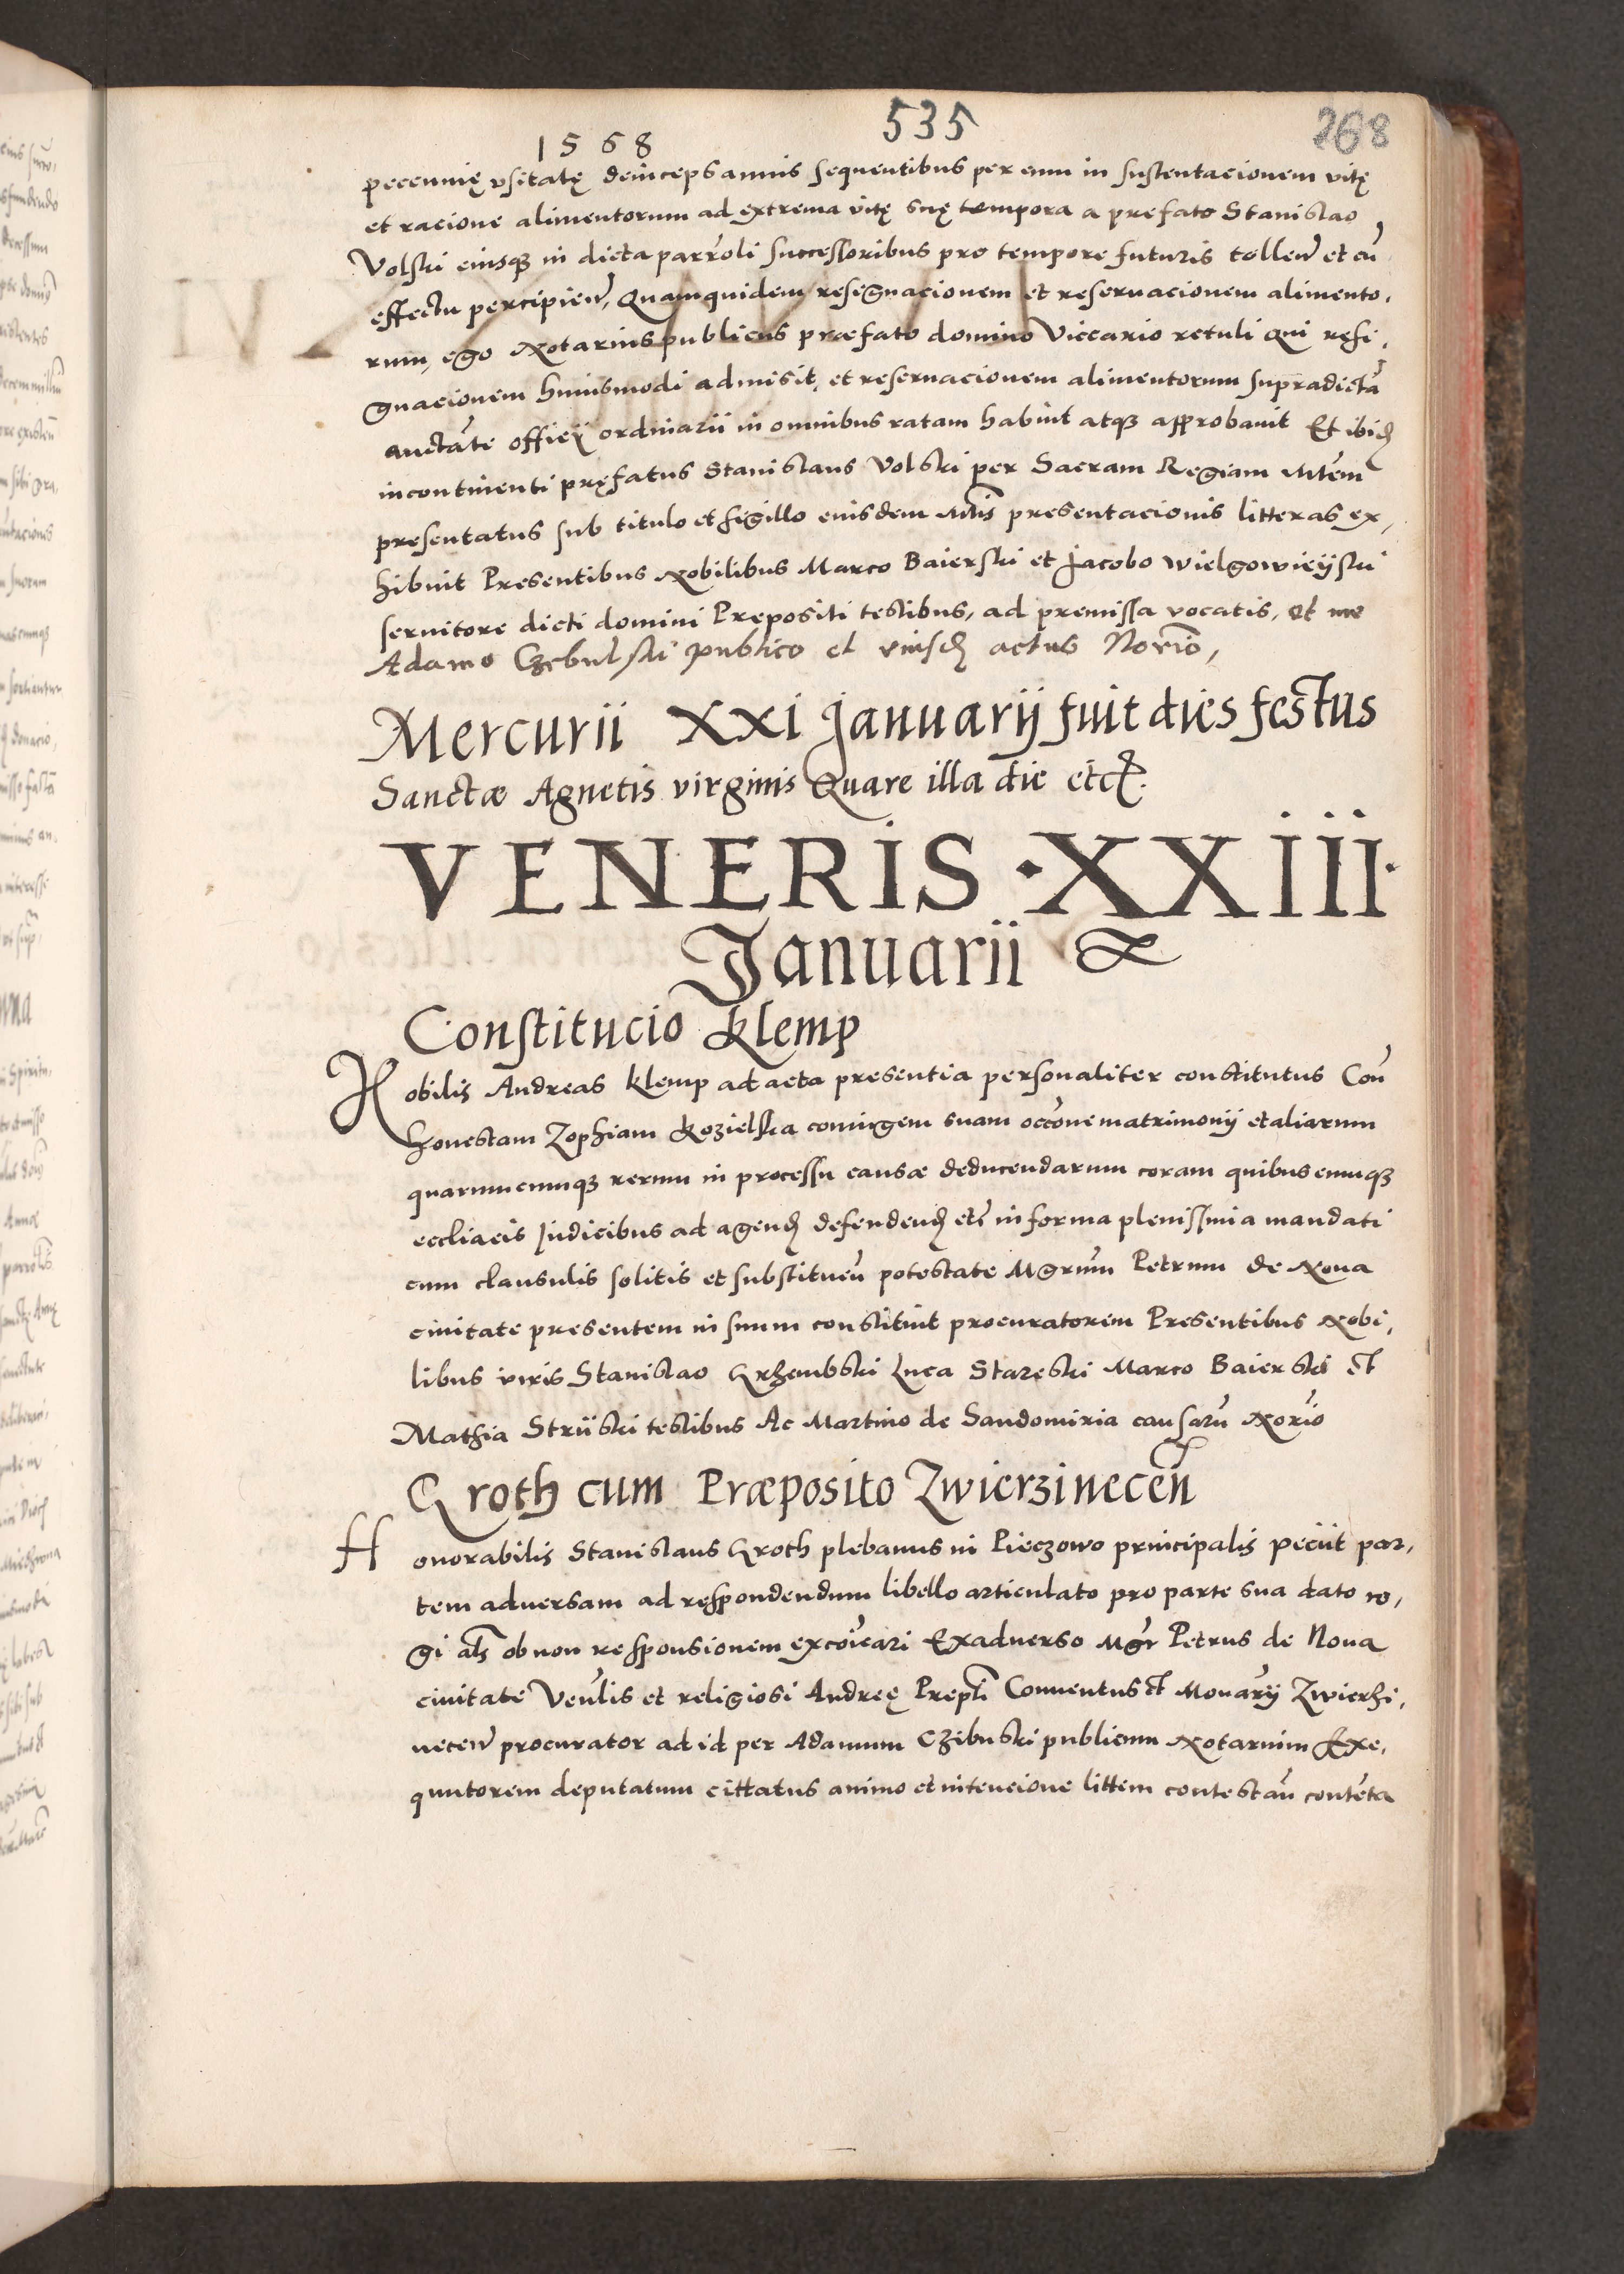 535
268
1568
pecennię vsitatę deinceps annis sequentibus per eum in sustentacionem vitę
et racione alimentorum ad extrema vitę suę tempora a prefato Stanislao
Volski eiusqȝ in dicta parroli successoribus pro tempore futuris tollen̄ et cū
effectu percipien̄, Quamquidem resignacionem et reseruacionem alimento,
rum, ego Notarius publicus præfato domino Viccario retuli Qui resi,
gnacionem huiusmodi admisit, et reseruacionem alimentorum supradictā
auctāte officÿ ordinarii in omnibus ratam habuit atqȝ approbauit Et ibid
incontinenti pręfatus Stanislaus Volski per Sacram Regiam Mtem
presentatus sub titulo et sigillo eiusdem Mtis presentacionis litteras ex,
hibuit Presentibus Nobilibus Marco Baierski et Jacobo Wielgowieÿski
seruitore dicti domini Prepositi testibus, ad premissa vocatis, et me
Adamo Czebulski publico et huiusd actus Norio,
Mercurii XXI Januarÿ fuit dies festus
Sanctæ Agnetis virginis Quare illa die etc.
VENERIS ·XXIII·
Januarii
Constitucio Klemp
Nobilis Andreas Klemp ad acta presentia personaliter constitutus Con̄
honestam Zophiam Kozielska coniugem suam occōne matrimonÿ et aliarum
quarumcumqȝ rerum in processu causæ deducendarum coram quibuscumqȝ
eccliacis Judicibus ad agend defendend etc in forma plenissima mandati
cum clausulis solitis et substituen̄ potestate Mgrum Petrum de Noua
ciuitate presentem in suum constituit procuratorem Presentibus Nobi,
libus viris Stanislao Grhembski Luca Staręski Marco Baierski et
Mathia Strüski testibus Ac Martino de Sandomiria causarū Norio
Groth cum Præposito Zwierzinecen̄
Honorabilis Stanislaus Groth plebanus in Pieczowo principalis peciit par,
tem aduersam ad respondendum libello articulato pro parte sua dato co,
gi als ob non responsionem excōicari Exaduerso Mgr Petrus de Noua
ciuitate Venlis et religiosi Andreę Prepti Conuentus et Monarÿ Zwierhi,
necen̄ procurator ad id per Adamum Czibuski publicum Notarium Exe,
quutorem deputatum cittatus animo et intencione littem contestan̄ contēta